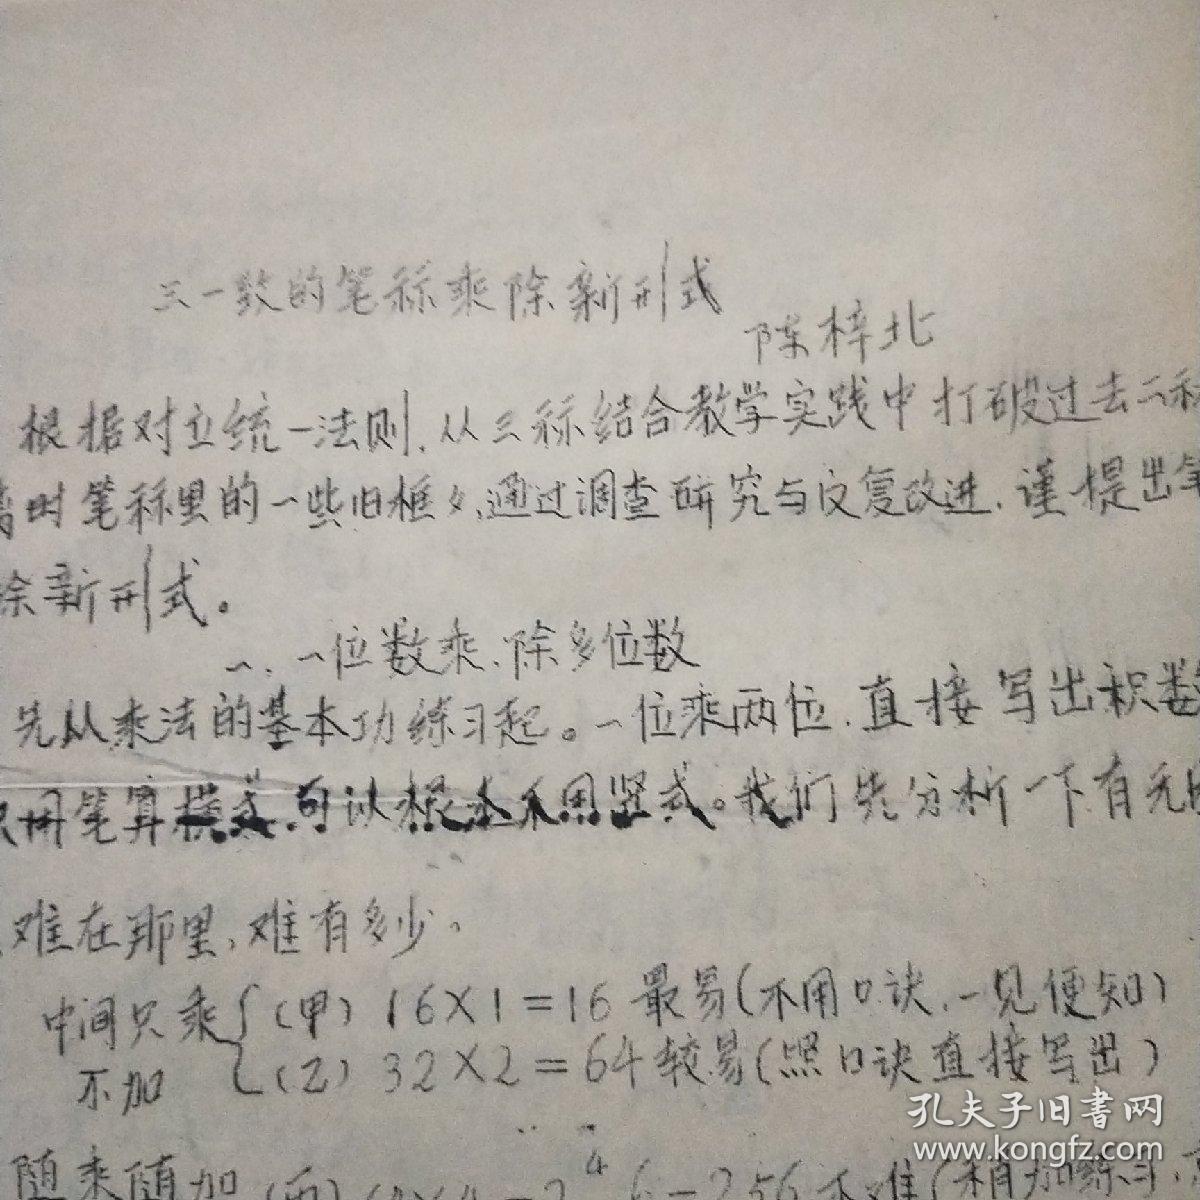 三一数的笔祘乘除新形式
陈梓北
根据对立统一法则，从三祘结合教学实践中打破过去二祘
离时笔祘里的一些旧框々，通过调查研究与反复改进，谨提出笔
除新形式。
一、一位数乘、除多位数
先从乘法的基本功练习起。一位乘两位，直接写出积数
用笔算 可以根本不用竖式。我们先分析一下有无
难在那里，难有多少。
中间只乘 (甲) 16×1=16 最易(不用口诀，一见便知)
不加 (乙) 32×2=64 较易(照口诀直接写出)
随乘随加 (丙) 256不难(稍加练习
孔夫子旧書网
www.kongfz.com